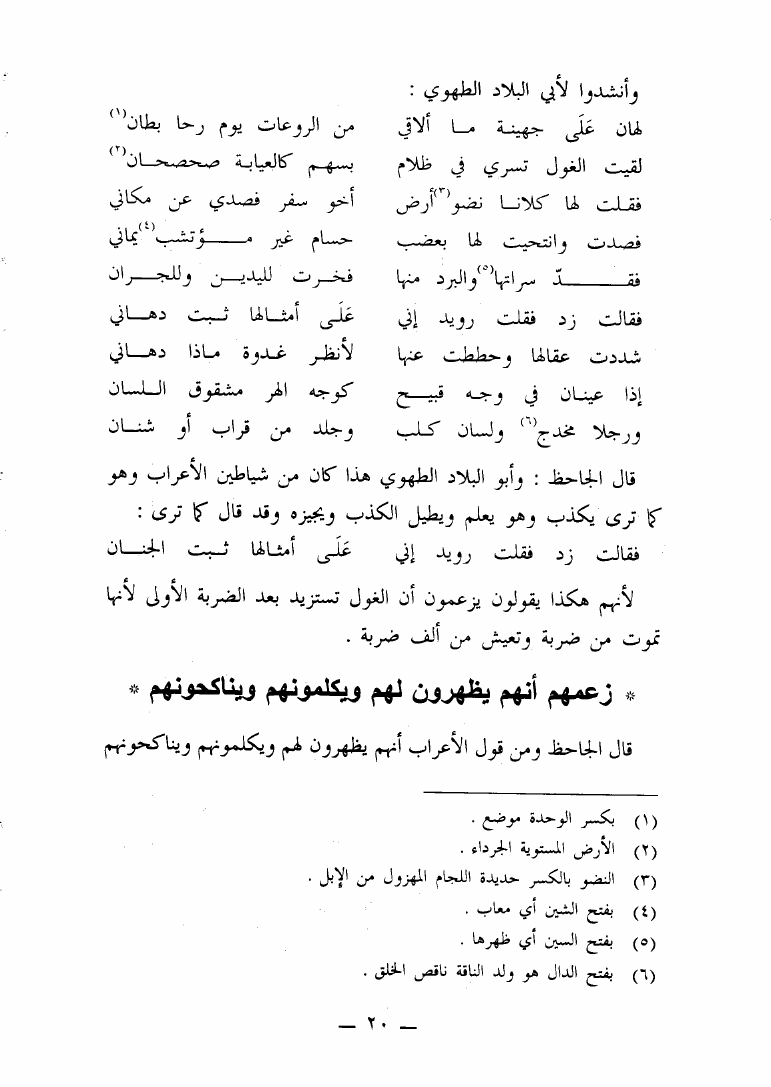 وأنشدوا لأبي البلاد الطهوي :
لهان عَلَى جهينة مــا ألاقي من الروعات يوم رحا بطان(١)
لقيت الغول تسري في ظلام بسهم كالعباية صحصحــان(٢)
فقـلت لها كلانــا نضو(٣)أرض أخو سفر فصدي عن مكاني
فصدت وانتحيت لها بعضب حسام غير مــؤتشب(٤)يماني
فقــــدّ سراتها(٥)والبرد منها فخــرت لليديــن وللجــران
فقالت زد فقلت رويد إني عَلَى أمثـالها ثبت دهــاني
شددت عقالها وحططت عنها لأنظر غـدوة مـاذا دهــاني
إذا عينـان في وجـه قبيـــح كوجه الهر مشقوق اللسان
ورجلا مخدج(٦) ولسان كلب وجلد من قراب أو شنــان
قال الجاحظ : وأبو البلاد الطهوي هذا كان من شياطين الأعراب وهو
كما ترى يكذب وهو يعلم ويطيل الكذب ويجيزه وقد قال كما ترى :
فقالت زد فقلت رويد إني عَلَى أمثالها ثبت الجنــان
لأنهم هكذا يقولون يزعمون أن الغول تستزيد بعد الضربة الأولى لأنها
تموت من ضربة وتعيش من ألف ضربة .
* زعمهم أنهم يظهرون لهم ويكلمونهم ويناكحونهم *
قال الجاحظ ومن قول الأعراب أنهم يظهرون لهم ويكلمونهم ويناكحونهم
(١) بكسر الوحدة موضع .
(٢) الأرض المستوية الجرداء .
(٣) النضو بالكسر حديدة اللجام المهزول من الإبل .
(٤) بفتح الشين أي معاب .
(٥) بفتح السين أي ظهرها .
(٦) بفتح الدال هو ولد الناقة ناقص الخلق .
— ٢٠ —